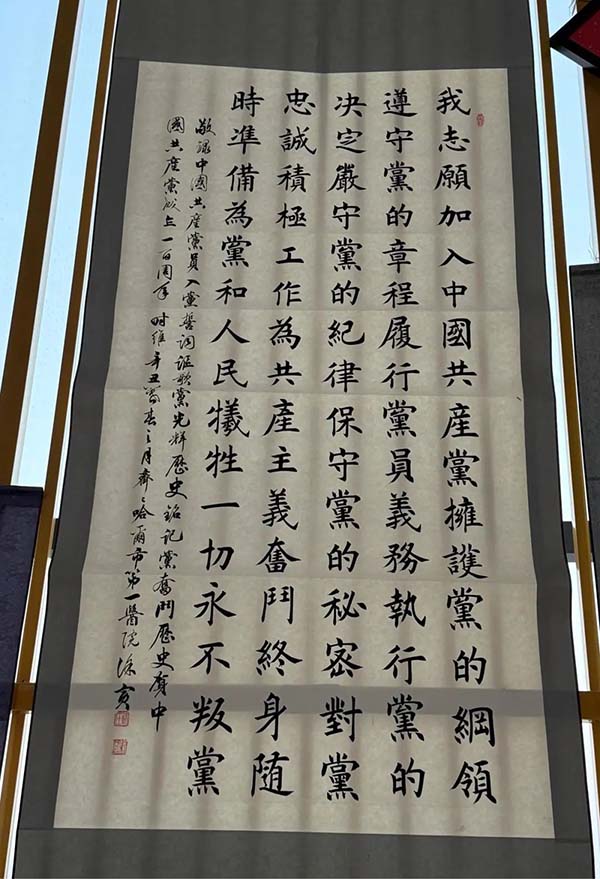 我志願加入中國共産黨擁護黨的綱領
遵守黨的章程履行黨員義務執行黨的
决定嚴守黨的紀律保守黨的秘密對黨
忠誠積極工作為共產主義奮鬥終身随
時準備為黨和人民犧牲一切永不叛黨
敬録中國共産黨員入黨誓詞謳歌黨光輝歷史銘記黨奮鬥歷史賀中
國共産黨成立一百周年時維辛丑年春三月齊齊哈爾市第一醫院